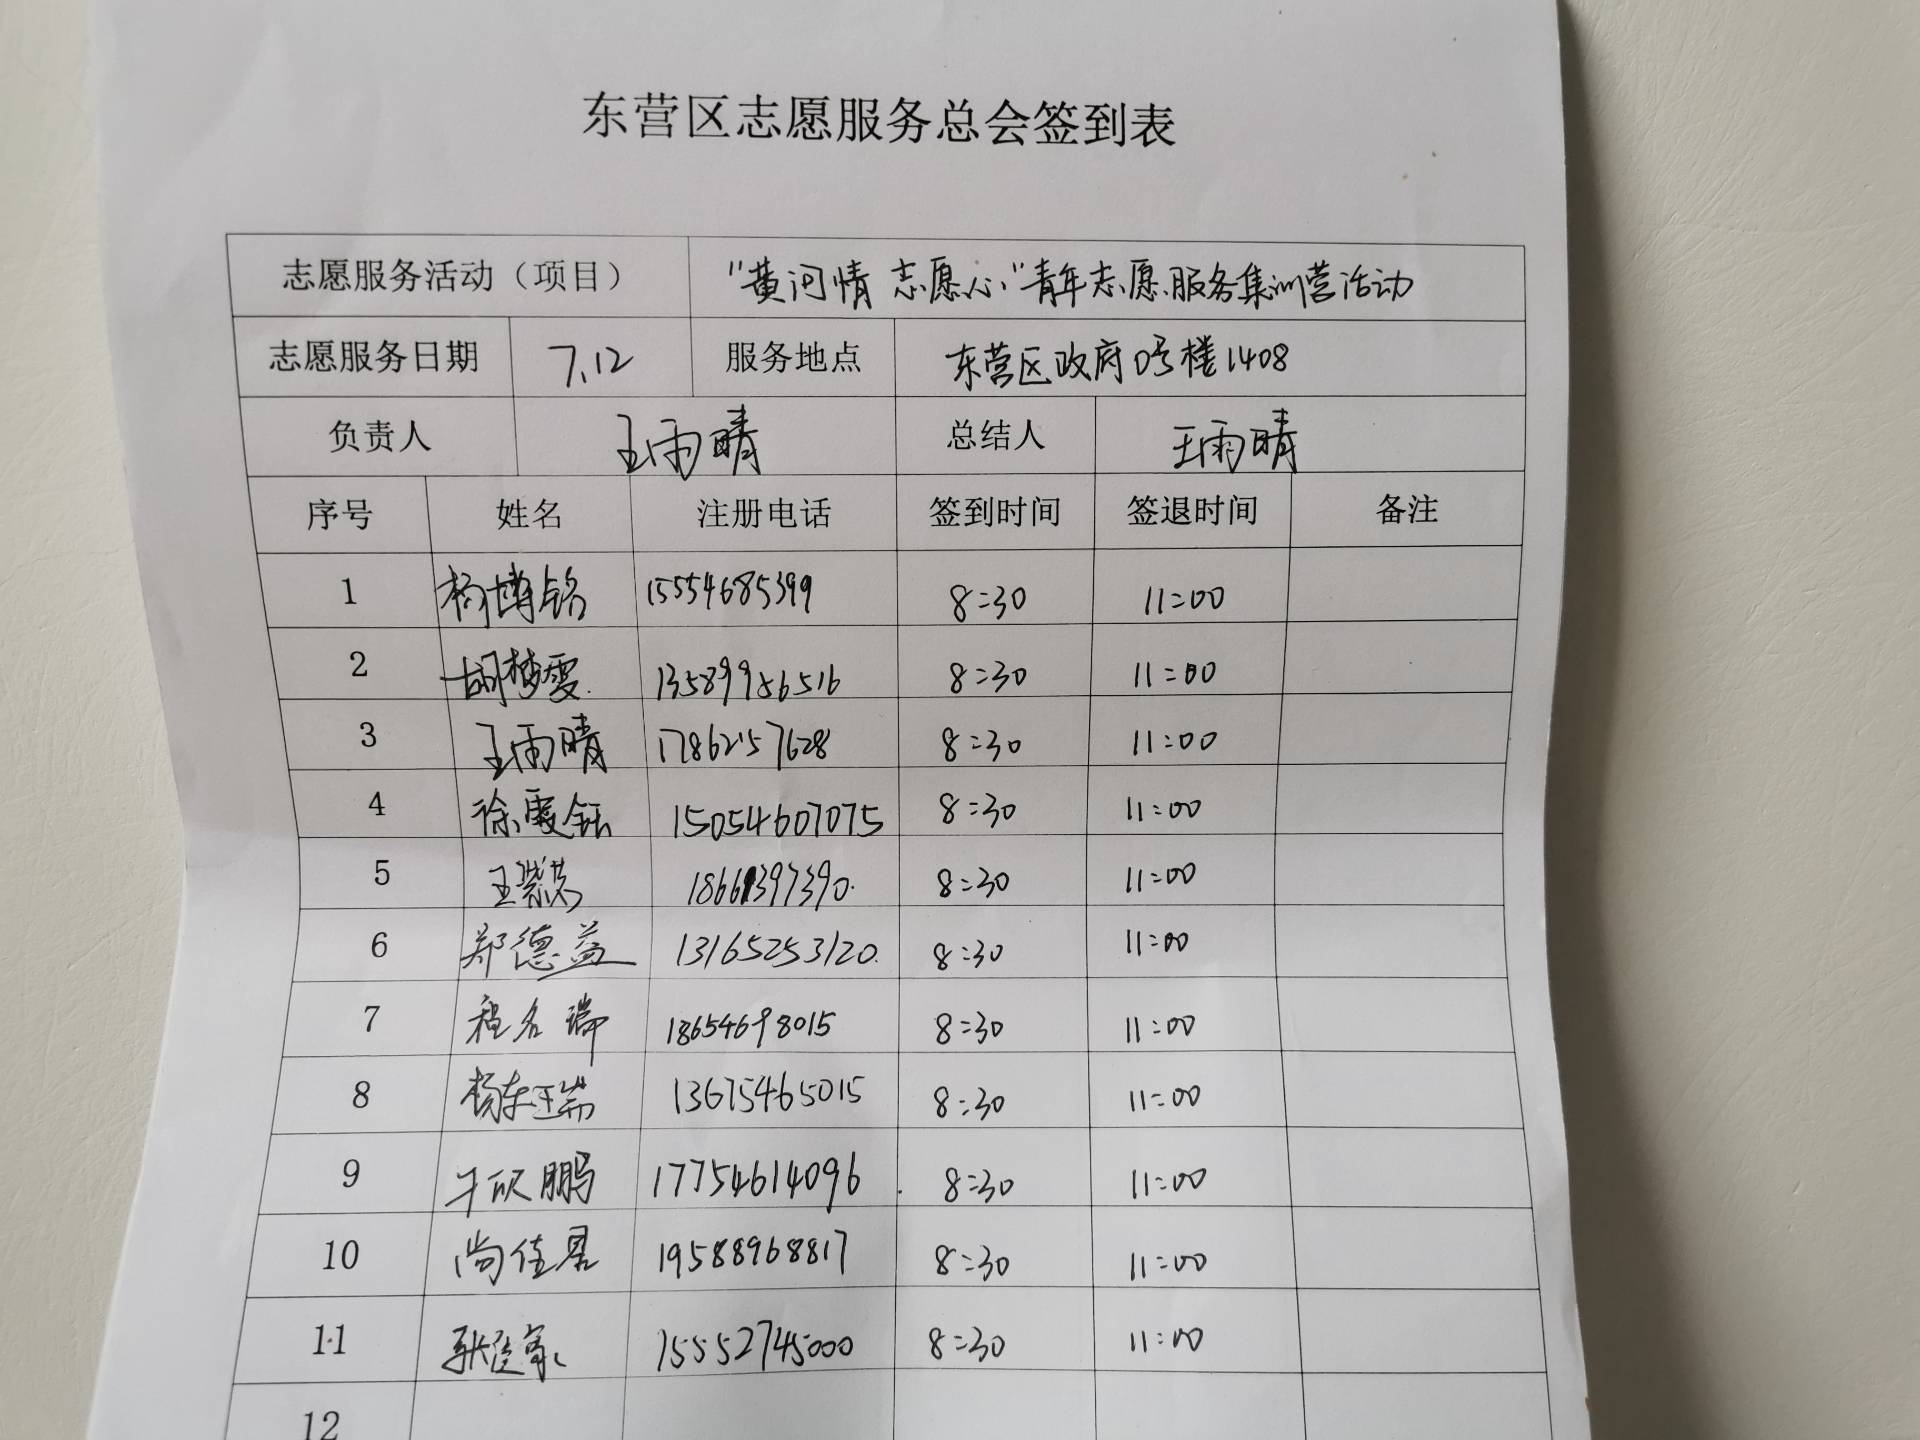 东营区志愿服务总会签到表
志愿服务活动（项目） “黄河情 志愿心”青年志愿服务集训营活动
志愿服务日期 7.12 服务地点 东营区政府0号楼1408
负责人 王雨晴 总结人 王雨晴
序号 姓名 注册电话 签到时间 签退时间 备注
1 杨博铭 15554685399 8:30 11:00
2 胡梦雯 13589956516 8:30 11:00
3 王雨晴 17862157628 8:30 11:00
4 徐霞钰 15054607075 8:30 11:00
5 王紫 18661397390 8:30 11:00
6 郑德益 13165253120 8:30 11:00
7 程名瑞 18654698015 8:30 11:00
8 杨东瑞 13675465015 8:30 11:00
9 鹏 17754614096 8:30 11:00
10 尚佳星 19588968817 8:30 11:00
11 15552745000 8:30 11:00
12